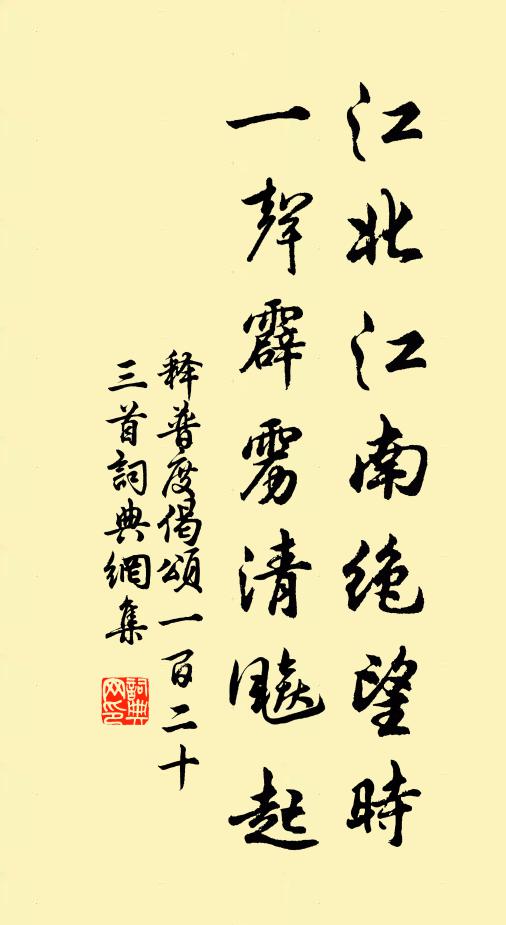 江北江南绝望時
一聲霹雳清飈起
释普度偈頌一百二十
三首詞典網集
詞典
网印